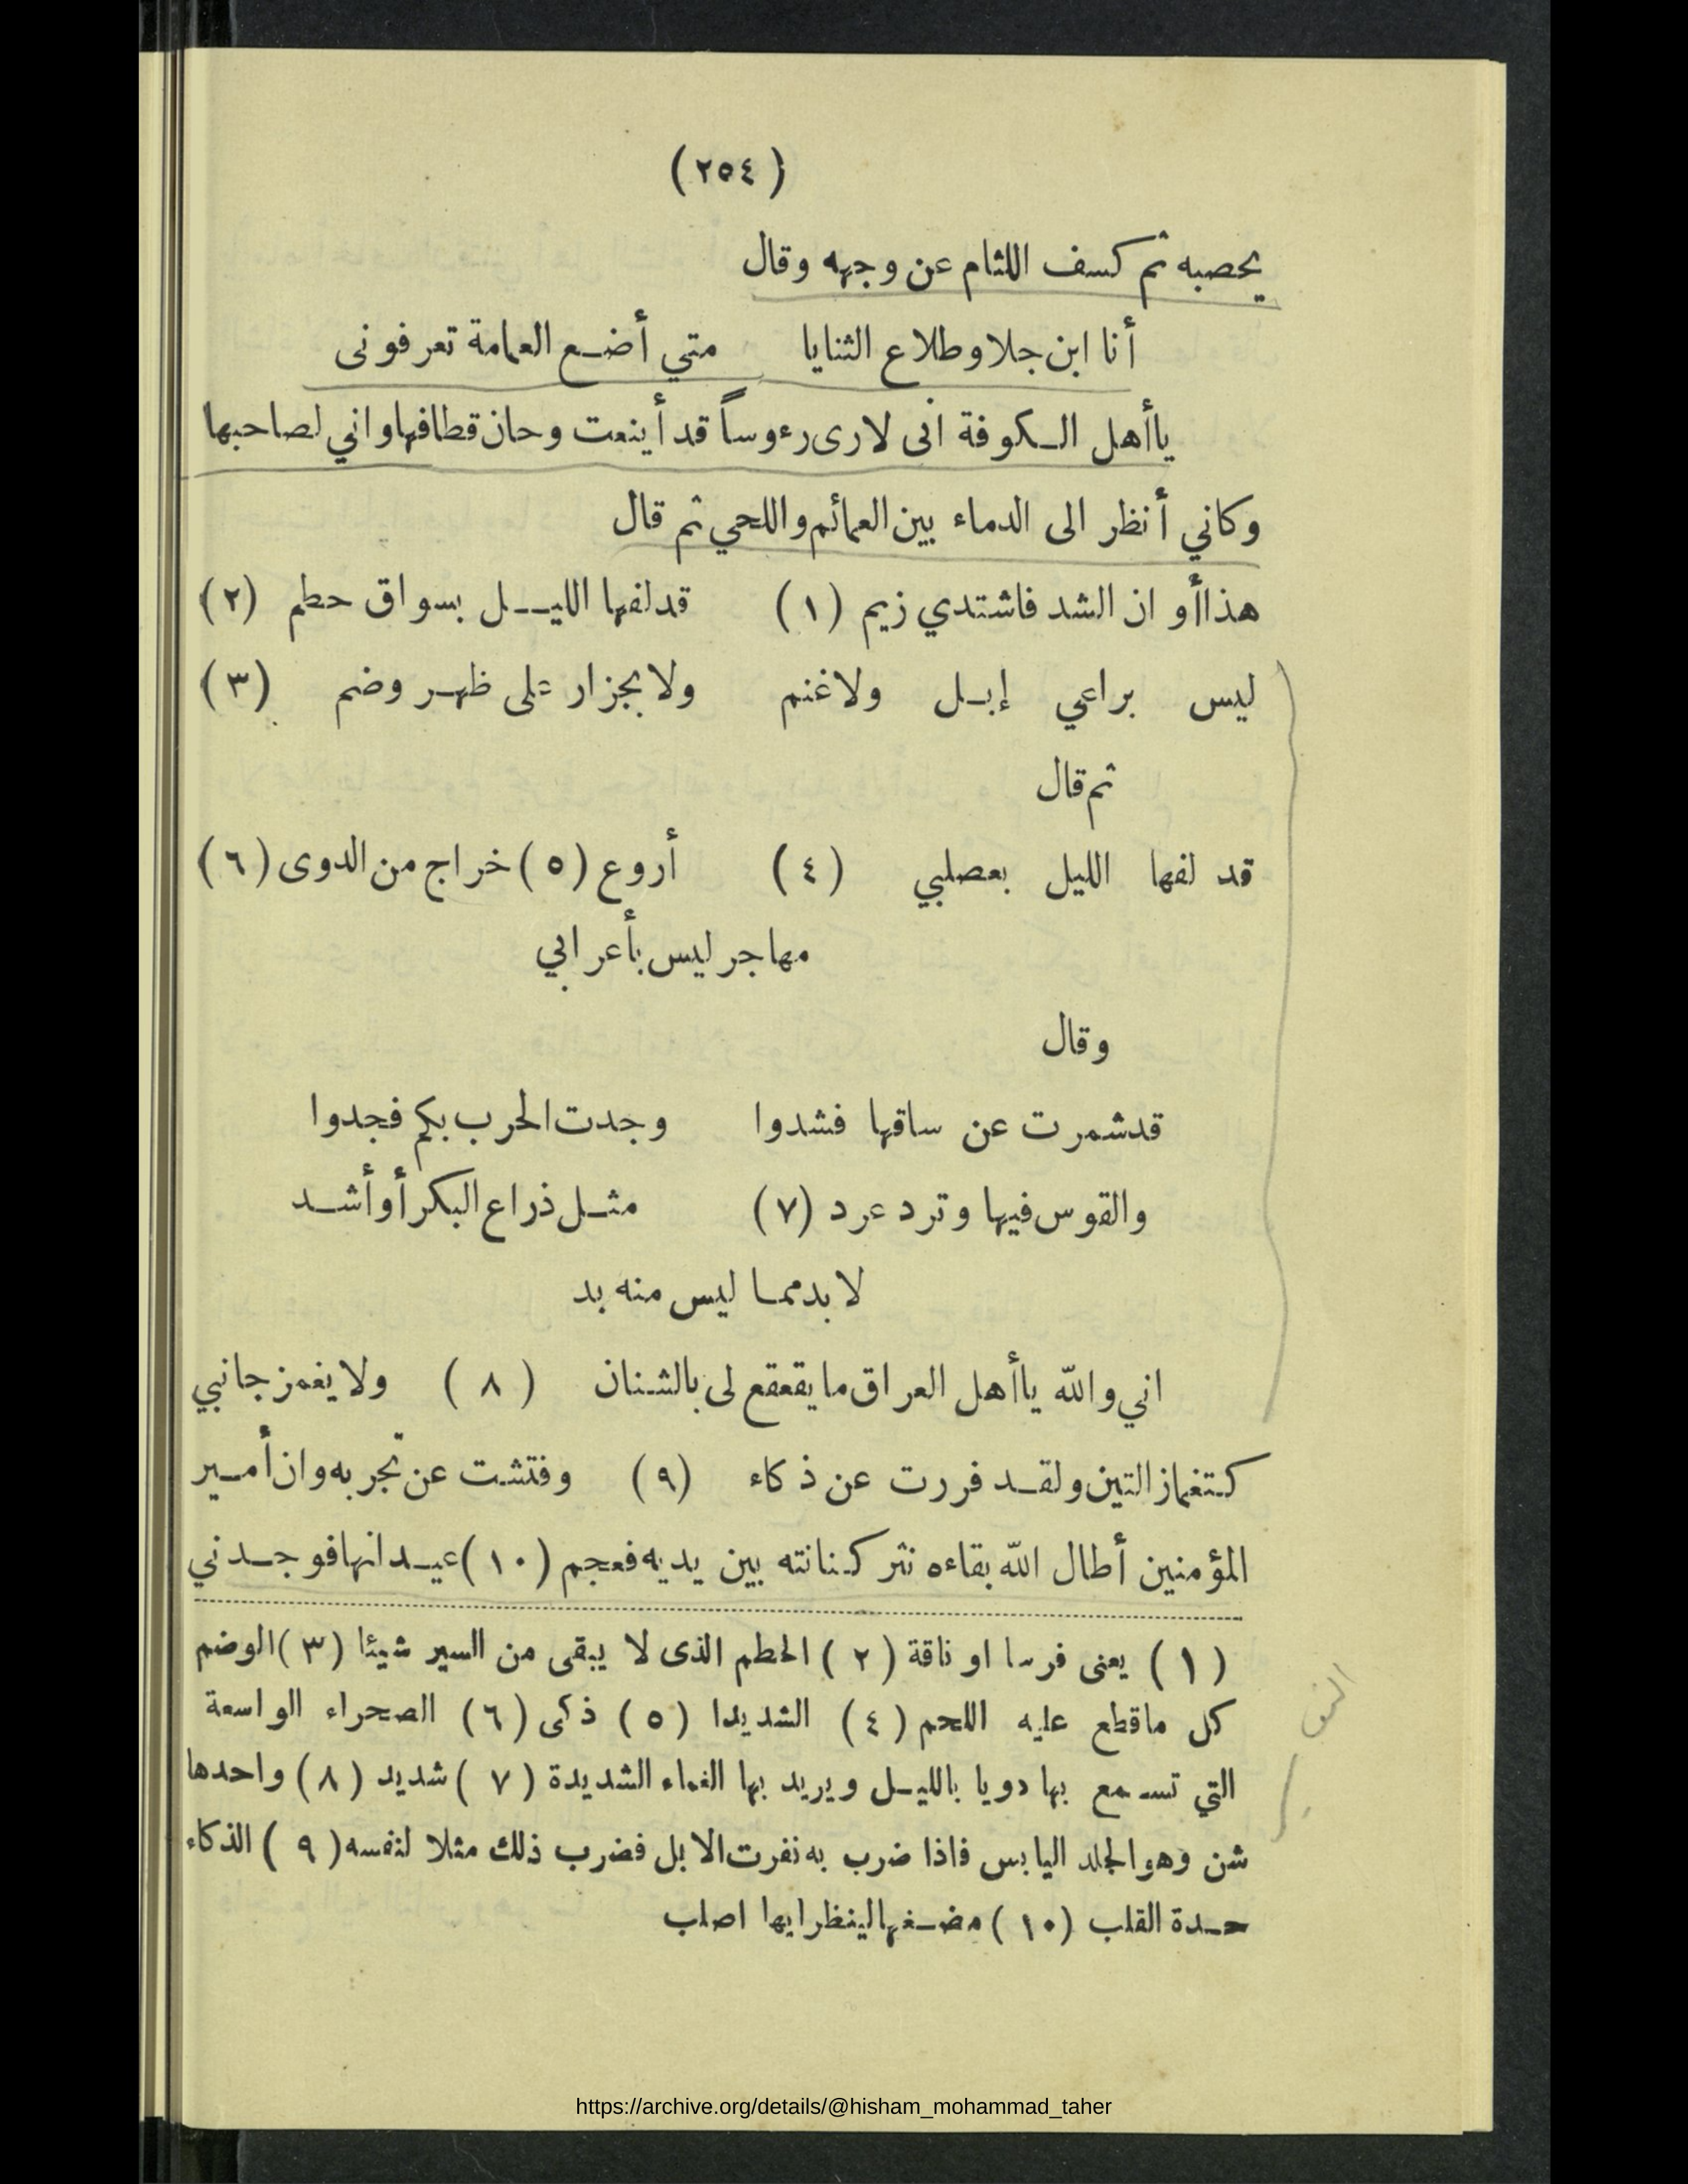 (٢٥٤)
يحصبه ثم كسف اللثام عن وجهه وقال
أنا ابن جلا وطلاع الثنايا متي أضع العمامة تعرفونى
ياأهل الكوفة انى لارى رءوساً قد أينعت وحان قطافها واني لصاحبها
وكاني أنظر الى الدماء بين العمائم واللحي ثم قال
هذا أوان الشد فاشتدي زيم (١) قد لفها الليل بسواق حطم (٢)
ليس براعي إبل ولا غنم ولا بجزار على ظهر وضم (٣)
ثم قال
قد لفها الليل بعصلبي (٤) أروع (٥) خراج من الدوى (٦)
مهاجر ليس بأعرابي
وقال
قد شمرت عن ساقها فشدوا وجدت الحرب بكم فجدوا
والقوس فيها وترد عرد (٧) مثل ذراع البكر أو أشد
لا بد مما ليس منه بد
اني والله ياأهل العراق ما يقعقع لى بالشنان (٨) ولا يغمز جانبي
كتغماز التين ولقد فررت عن ذكاء (٩) وفتشت عن تجربه وان أمير
المؤمنين أطال الله بقاءه نثر كنانته بين يديه فعجم (١٠) عيدانها فوجدني
(١) يعنى فرسا او ناقة (٢) الحطم الذى لا يبقى من السير شيئا (٣) الوضم
كل ماقطع عليه اللحم (٤) الشديدا (٥) ذكى (٦) الصحراء الواسعة
التي تسمع بها دويا بالليل ويريد بها الغماء الشديدة (٧) شديد (٨) واحدها
شن وهو الجلد اليابس فاذا ضرب به نفرت الابل فضرب ذلك مثلا لنفسه (٩) الذكاء
حدة القلب (١٠) مضغها لينظر ايها اصلب
https://archive.org/details/@hisham_mohammad_taher